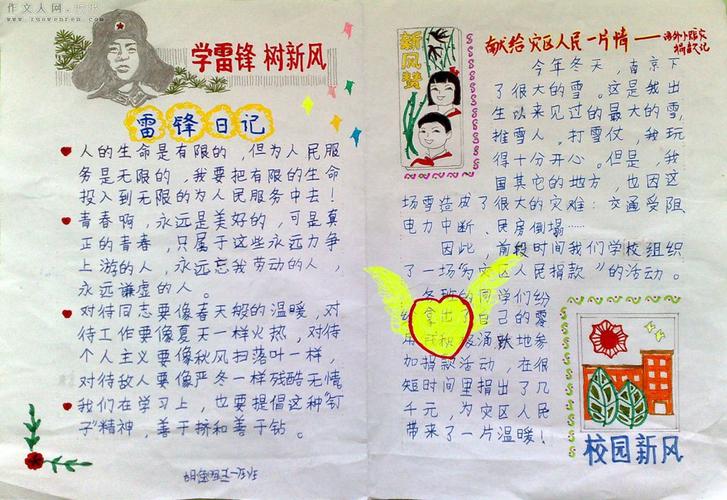 作文人网
www.zuowenren.com
学雷锋 树新风
雷锋日记
人的生命是有限的,但为人民服
务是无限的,我要把有限的生命
投入到无限的为人民服务中去!
青春啊,永远是美好的,可是真
正的青春,只属于这些永远力争
上游的人,永远忘我劳动的人,
永远谦虚的人。
对待同志要像春天般的温暖,对
待工作要像夏天一样火热,对待
个人主义要像秋风扫落叶一样,
对待敌人要像严冬一样残酷无情
我们在学习上,也要提倡这种"钉
子"精神,善于挤和善于钻。
新风赞
献给灾区人民一片情——
今年冬天,南京下
了很大的雪。这是我出
生以来见过的最大的雪,
推雪人。打雪仗,我玩
得十分开心。但是,我
国其它的地方,也因这
场雪造成了很大的灾难:交通受阻
电力中断、民房倒塌……
因此,前段时间我们学校组织
了一场"为灾区人民捐款"的活动。
各班的同学们纷
纷拿出了自己的零
用钱积极踊跃地参
加捐款活动,在很
短时间里捐出了几
千元,为灾区人民
带来了一片温暖!
校园新风